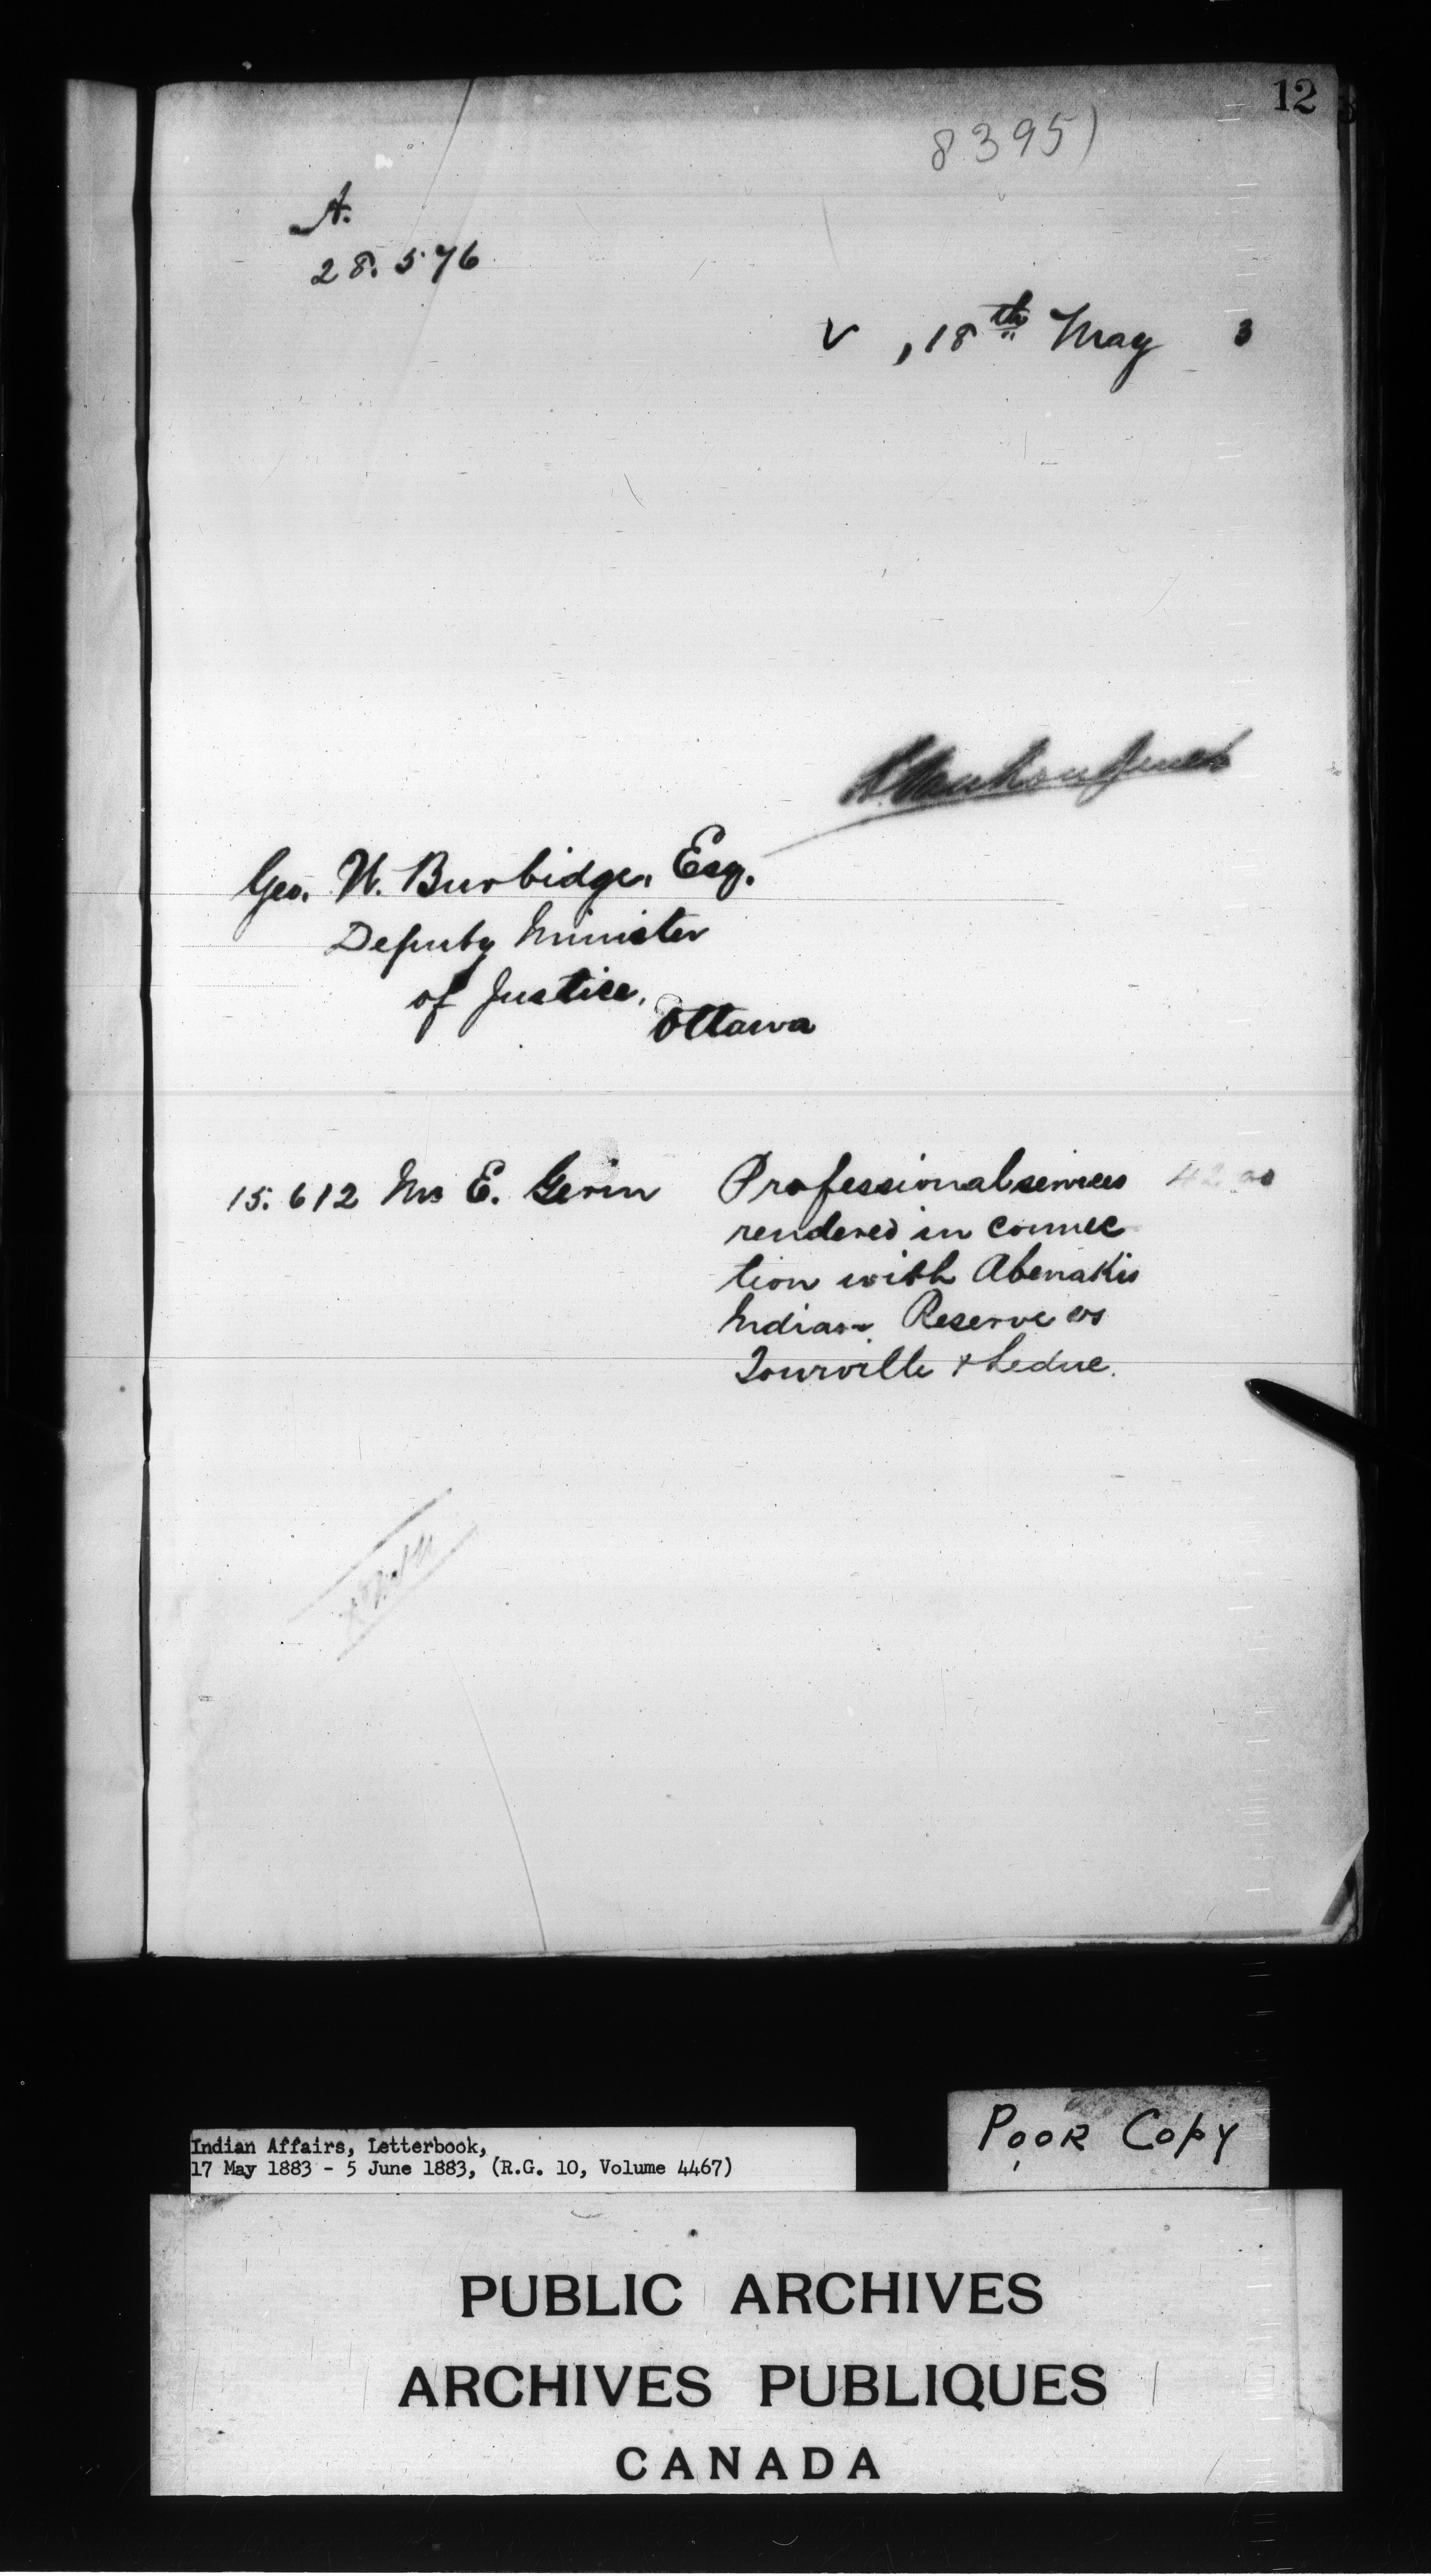 12
8395)
A.
28.576
V , 18th May 3
L. Vankoughnet
Geo. W. Burbidge, Esq.
Deputy Minister
of Justice,
Ottawa
15.612 Mr E. Gerin Professional services 42 00
rendered in connec
tion with Abenakis
Indian Reserve vs
Tourville & Leduc.
Indian Affairs, Letterbook,
17 May 1883 - 5 June 1883, (R.G. 10, Volume 4467)
POOR COPY
PUBLIC ARCHIVES
ARCHIVES PUBLIQUES
CANADA